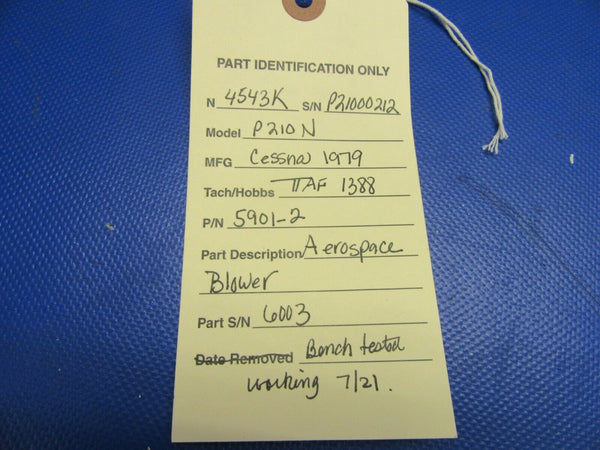 PART IDENTIFICATION ONLY
N 4543K S/N P21000212
Model P210N
MFG Cessna 1979
Tach/Hobbs TTAF 1388
P/N 5901-2
Part Description Aerospace
Blower
Part S/N 6003
Date Removed Bench tested
working 7/21.